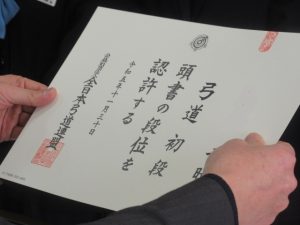 弓道 初段
頭書の段位を
認許する
令和五年十一月三十日
全日本弓道連盟